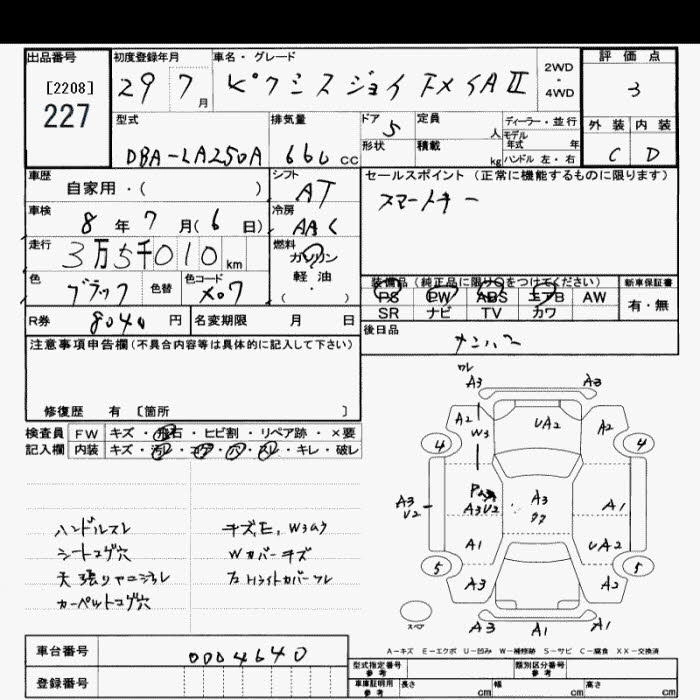 出品番号
[2208]
227
初度登録年月
29 7月
車名・グレード
ピクシスジョイ FX SA II
2WD
・
4WD
評価点
3
外装 内装
C D
型式
DBA-LA250A
排気量
660 cc
ドア
5
形状
定員
人
積載
kg
ディーラー・並行
モデル
年式 年
ハンドル 左・右
車歴
自家用・( )
シフト
AT
車検
8年 7月(6日)
冷房
AAC
走行
3万5千010 km
燃料
ガソリン
軽油
・
( )
色
ブラック
色替
色コード
X07
R券
8040 円
名変期限 月 日
セールスポイント (正常に機能するものに限ります)
スマートキー
装備品 (純正品に限り○をつけてください)
PS PW ABS エアB AW
SR ナビ TV カワ
新車保証書
有・無
後日品
ナンバー
注意事項申告欄(不具合内容等は具体的に記入して下さい)
修復歴 有 〔箇所 〕
検査員
記入欄
FW キズ・飛石・ヒビ割・リペア跡・×要
内装 キズ・汚レ・コゲ・穴・スレ・キレ・破レ
ハンドルスレ
シートコゲ穴
天張りヤニヨゴレ
カーペットコゲ穴
Wカバーキズ
ワレ
A3 A3
A2 UA2 A2
W3
4 4
A3
U2
A3
A3U2
A1
A1 UA2
5 5
A3 A2
スペア
A3 A1 A1
A-キズ E-エクボ U-凹み W-補修跡 S-サビ C-腐食 XX-交換済
車台番号
0004640
登録番号
型式指定番号
参考
類別区分番号
参考
車庫証明用
参考
長さ cm 幅 cm 高さ cm